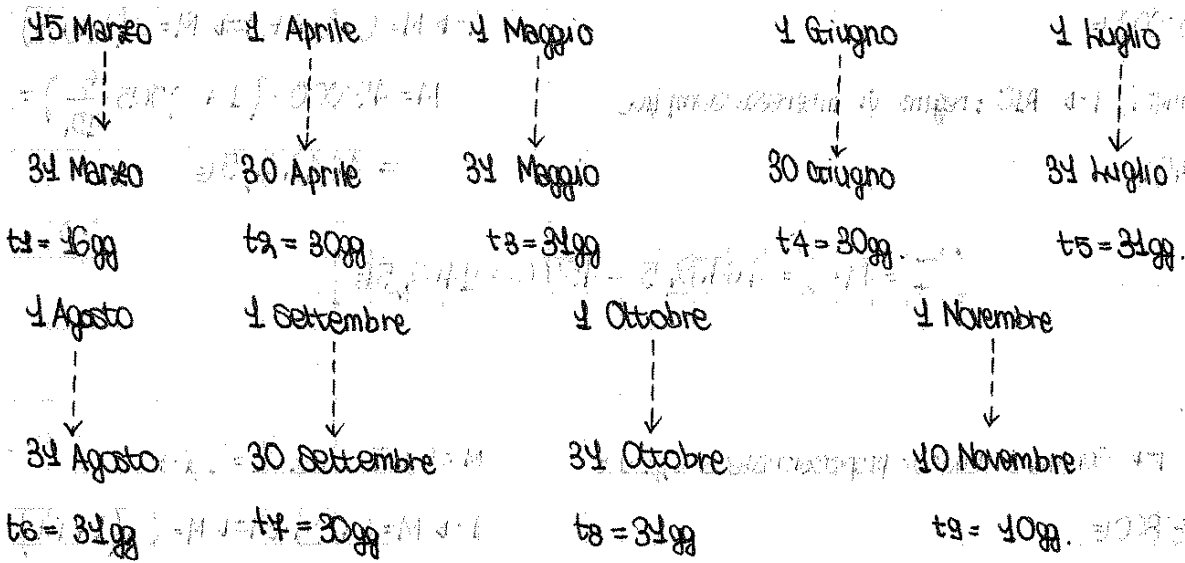 15 Marzo 1 Aprile 1 Maggio 1 Giugno 1 Luglio
31 Marzo 30 Aprile 31 Maggio 30 Giugno 31 Luglio
t1 = 16gg t2 = 30gg t3 = 31gg t4 = 30gg. t5 = 31gg.
1 Agosto 1 Settembre 1 Ottobre 1 Novembre
31 Agosto 30 Settembre 31 Ottobre 10 Novembre
t6 = 31gg t7 = 30gg t8 = 31gg t9 = 10gg.